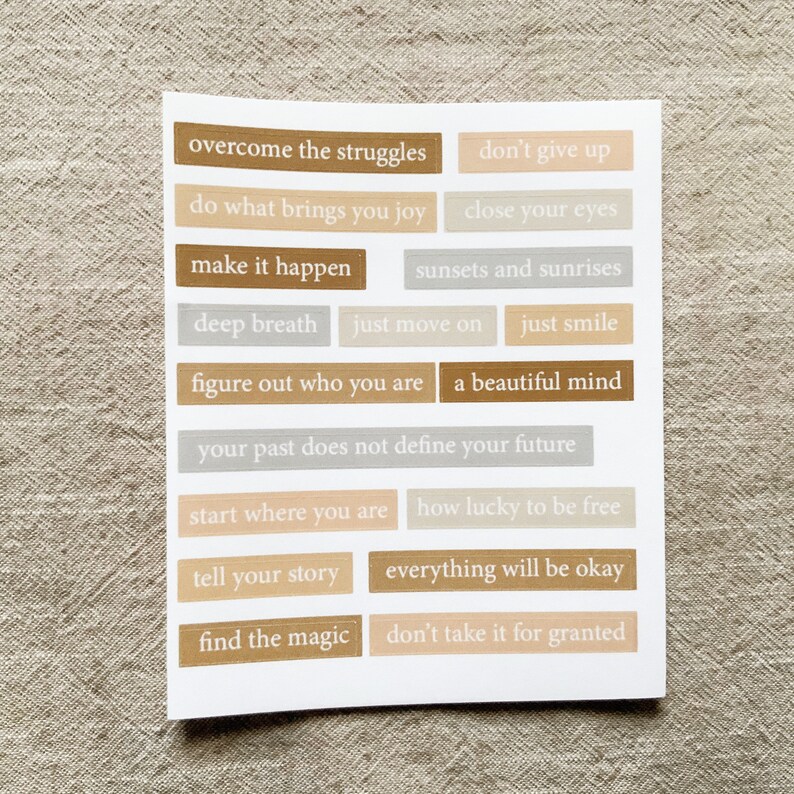 overcome the struggles don't give up
do what brings you joy close your eyes
make it happen sunsets and sunrises
deep breath just move on just smile
figure out who you are a beautiful mind
your past does not define your future
start where you are how lucky to be free
tell your story everything will be okay
find the magic don't take it for granted